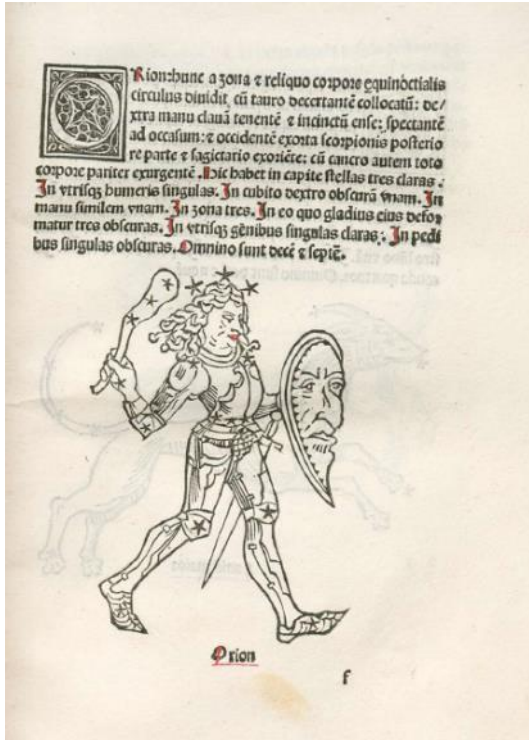 ORion: hunc a zona ⁊ reliquo corpore equinoctialis
circulus diuidit, cũ tauro decertantẽ collocatũ: de/
xtra manu clauã tenentẽ ⁊ incinctũ ense: spectantẽ
ad occasum: ⁊ occidentẽ exorta scorpionis posterio
re parte ⁊ sagictario exoriẽte: cũ cancro autem toto
corpore pariter exurgentẽ. Hic habet in capite stellas tres claras:
In vtrisqꝫ humeris singulas. In cubito dextro obscurã vnam. In
manu similem vnam. In zona tres. In eo quo gladius eius defor
matur tres obscuras. In vtrisqꝫ genibus singulas claras: In pedi
bus singulas obscuras. Omnino sunt decẽ ⁊ septẽ.
Orion
f